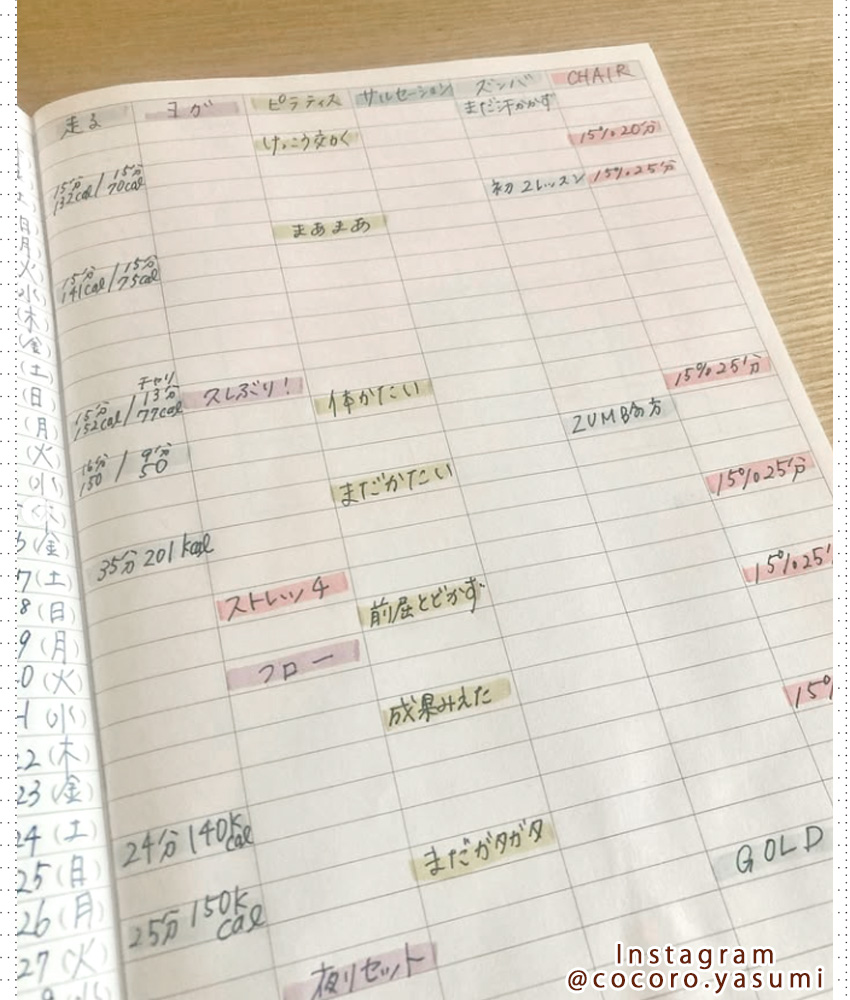 走る ヨガ ピラティス サルセーション ズンバ CHAIR
まだ汗かかず
けっこう効く 15% 20分
15分 132cal / 15分 70cal
初 ZLッスン 15% 25分
まあまあ
15分 141cal / 15分 75cal
15% 25分
チャリ
15分 152cal / 13分 77cal スしぶり! 体かたい
ZUMBAの方
16分 150 / 9分 50
まだかたい 15% 25分
35分 201kcal
15% 25
ストレッチ 前屈とどかず
フロー
成果みえた 15%
24分 140kcal
まだガタガタ
GOLD
25分 150kcal
夜リセット
日
月
火
水
(木
(金
(土
(日
(月
(火
(水
(金)
7(土)
8(日)
9(月)
0(火)
1(水)
22(木)
23(金)
24(土)
25(日)
26(月)
27(火)
Instagram
@cocoro.yasumi